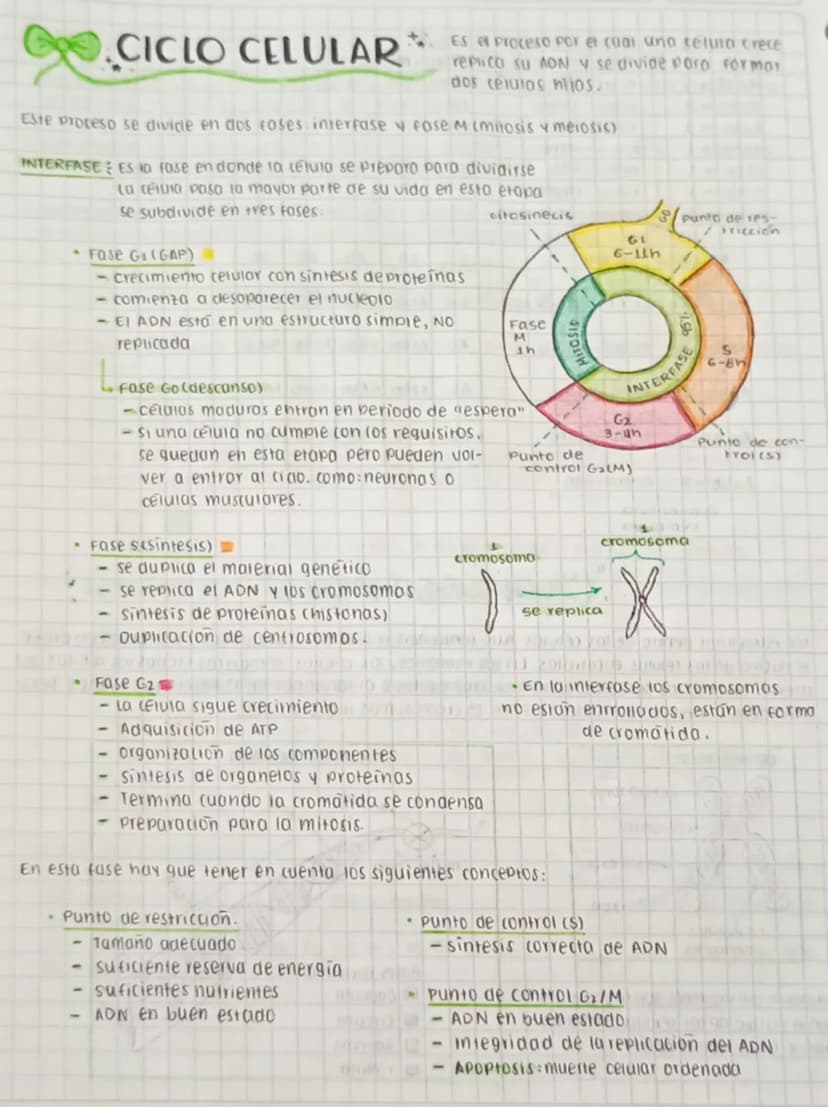 CICLO CELULAR
Es el proceso por el cual una célula crece
replica su ADN y se divide para formar
dos células hijas.
Este proceso se divide en dos fases interfase y fase M (mitosis y meiosis)
INTERFASE: Es la fase en donde la célula se prepara para dividirse
La célula pasa la mayor parte de su vida en esta etapa
se subdivide en tres fases.
• Fase G1 (GAP)
- crecimiento celular con síntesis de proteínas
- comienza a desaparecer el nucleolo
- El ADN está en una estructura simple, NO
replicada
Fase G0 (descanso)
- células maduras entran en periodo de "espera"
- si una célula no cumple con los requisitos.
se quedan en esta etapa pero pueden vol-
ver a entrar al ciclo. como: neuronas o
células musculares.
citosinecis
G0
punto de res-
tricción
G1
6-11h
Fase
M
1h
MITOSIS
INTERFASE 95%
S
6-8h
G2
3-4h
Punto de
control G2(M)
Punto de con-
trol(s)
• Fase S(síntesis)
- se duplica el material genético
- se replica el ADN y los cromosomas
- síntesis de proteínas (histonas)
- Duplicación de centrosomas.
1
cromosoma
se replica
1
cromosoma
• Fase G2
- La célula sigue crecimiento
- Adquisición de ATP
- organización de los componentes
- síntesis de organelos y proteínas
- Termina cuando la cromátida se condensa
- preparación para la mitosis.
• En la interfase los cromosomas
no están enrrollados, están en forma
de cromátida.
En esta fase hay que tener en cuenta los siguientes conceptos:
• Punto de restricción.
- Tamaño adecuado
- suficiente reserva de energía
- suficientes nutrientes
- ADN en buen estado
• Punto de control (s)
- síntesis correcta de ADN
• Punto de control G2/M
- ADN en buen estado
- integridad de la replicación del ADN
- Apoptosis: muerte celular ordenada